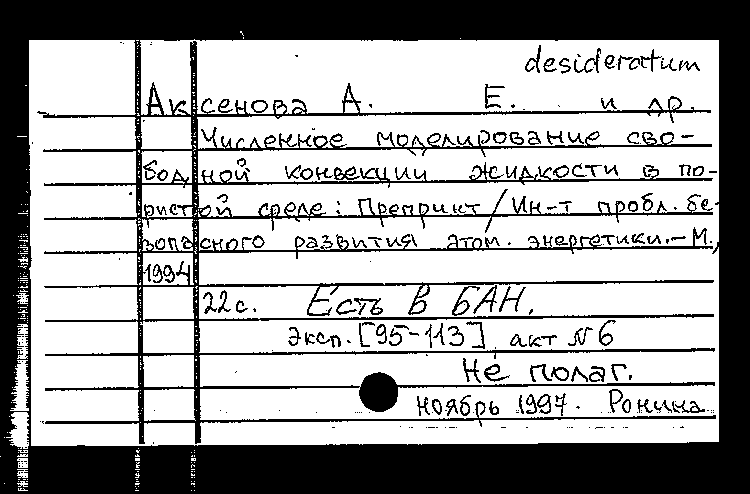 desideratum
Аксенова А. Е. и др.
Численное моделирование сво-
бодной конвекции жидкости в по-
ристой среде: Препринт/Ин-т пробл. бе-
зопасного развития атом. энергетики.-М.,
1994
22 с. Есть в БАН.
Эксп. [95-113] акт N 6
Не полаг.
ноябрь 1997. Ронина